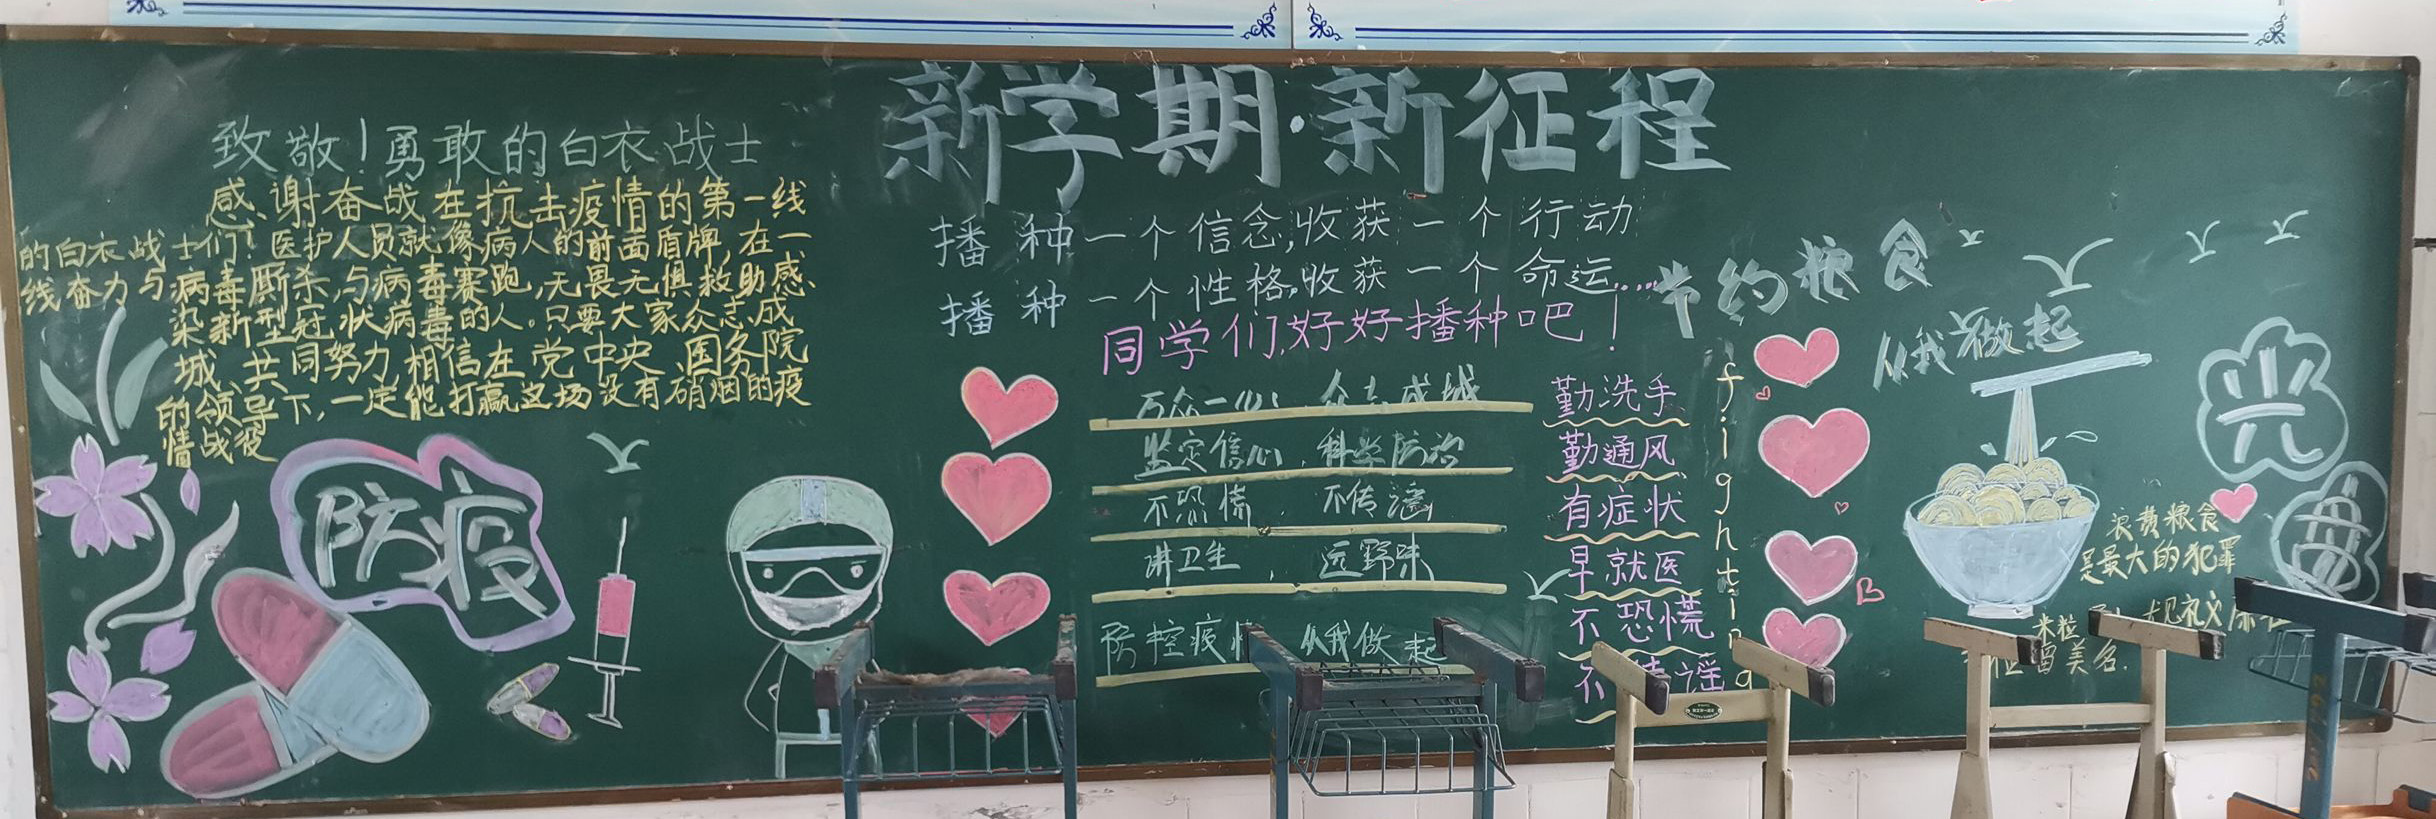 新学期·新征程
致敬！勇敢的白衣战士
感谢奋战在抗击疫情的第一线
的白衣战士们！医护人员就像病人的前面盾牌，在一
线奋力与病毒厮杀，与病毒赛跑，无畏无惧救助感
染新型冠状病毒的人。只要大家众志成
城、共同努力，相信在党中央、国务院
的领导下，一定能打赢这场没有硝烟的疫
情战役
防疫
播种一个信念，收获一个行动
播种一个性格，收获一个命运……
同学们，好好播种吧！
万众一心，众志成城
坚定信心，科学防治
不恐慌，不传谣
讲卫生，远野味
防控疫情 从我做起
勤洗手
勤通风
有症状
早就医
不恐慌
不 谣
fighting
节约粮食
从我做起
光
浪费粮食
是最大的犯罪
米粒
留美名.